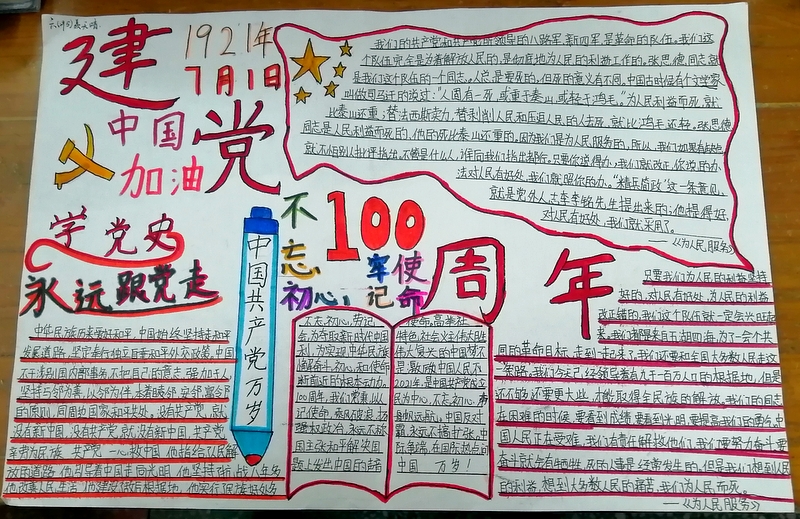 建党
1921年
7月1日
中国
加油
学党史
永远跟党走
不忘
初心，牢记使命
100
周年
中国共产党万岁
我们的共产党和共产党所领导的八路军、新四军,是革命的队伍。我们这
个队伍完全是为着解放人民的,是彻底地为人民的利益工作的。张思德同志就
是我们这个队伍中的一个同志。人总是要死的,但死的意义有不同。中国古时候有个文学家
叫做司马迁的说过:"人固有一死,或重于泰山,或轻于鸿毛。"为人民利益而死,就
比泰山还重;替法西斯卖力,替剥削人民和压迫人民的人去死,就比鸿毛还轻。张思德
同志是为人民利益而死的,他的死比泰山还要重的。因为我们是为人民服务的,所以,我们如果有缺点,
就不怕别人批评指出。不管是什么人,谁向我们指出都行。只要你说得办,我们就改正。你说的办
法对人民有好处,我们就照你的办。"精兵简政"这一条意见,
就是党外人士李鼎铭先生提出来的;他提得好,
对人民有好处,我们就采用了。
——《为人民服务》
只要我们为人民的利益坚持
好的,对人民有好处,为人民的利益
改正错的,我们这个队伍就一定会兴旺起
来。我们都是来自五湖四海,为了一个共
同的革命目标,走到一起来了。我们还要和全国大多数人民走这
一条路。我们今天已经领导着有九千一百万人口的根据地,但是
还不够,还要更大些,才能取得全民族的解放。我们的同志
在困难的时候,要看到成绩,要看到光明,要提高我们的勇气。中
国人民正在受难,我们有责任解救他们,我们要努力奋斗。要
奋斗就会有牺牲,死人的事是经常发生的。但是我们想到人民
的利益,想到大多数人民的痛苦,我们为人民而死。
——《为人民服务》
中华民族历来爱好和平,中国始终坚持走和平
发展道路,坚定奉行独立自主和平外交政策,中国
不干涉别国内部事务,不把自己的意志强加于人,
坚持与邻为善,以邻为伴,本着睦邻、安邻、富邻
的原则,同周边国家和平共处。没有共产党,就
没有新中国,没有共产党,就没有新中国,共产党
辛劳为民族,共产党一心救中国,他指给了人民解
放的道路,他引导着中国走向光明,他坚持抗战八年多
他改善人民生活,他建设敌后根据地,他实行民主好处多
不忘初心,牢记
使命,高举社